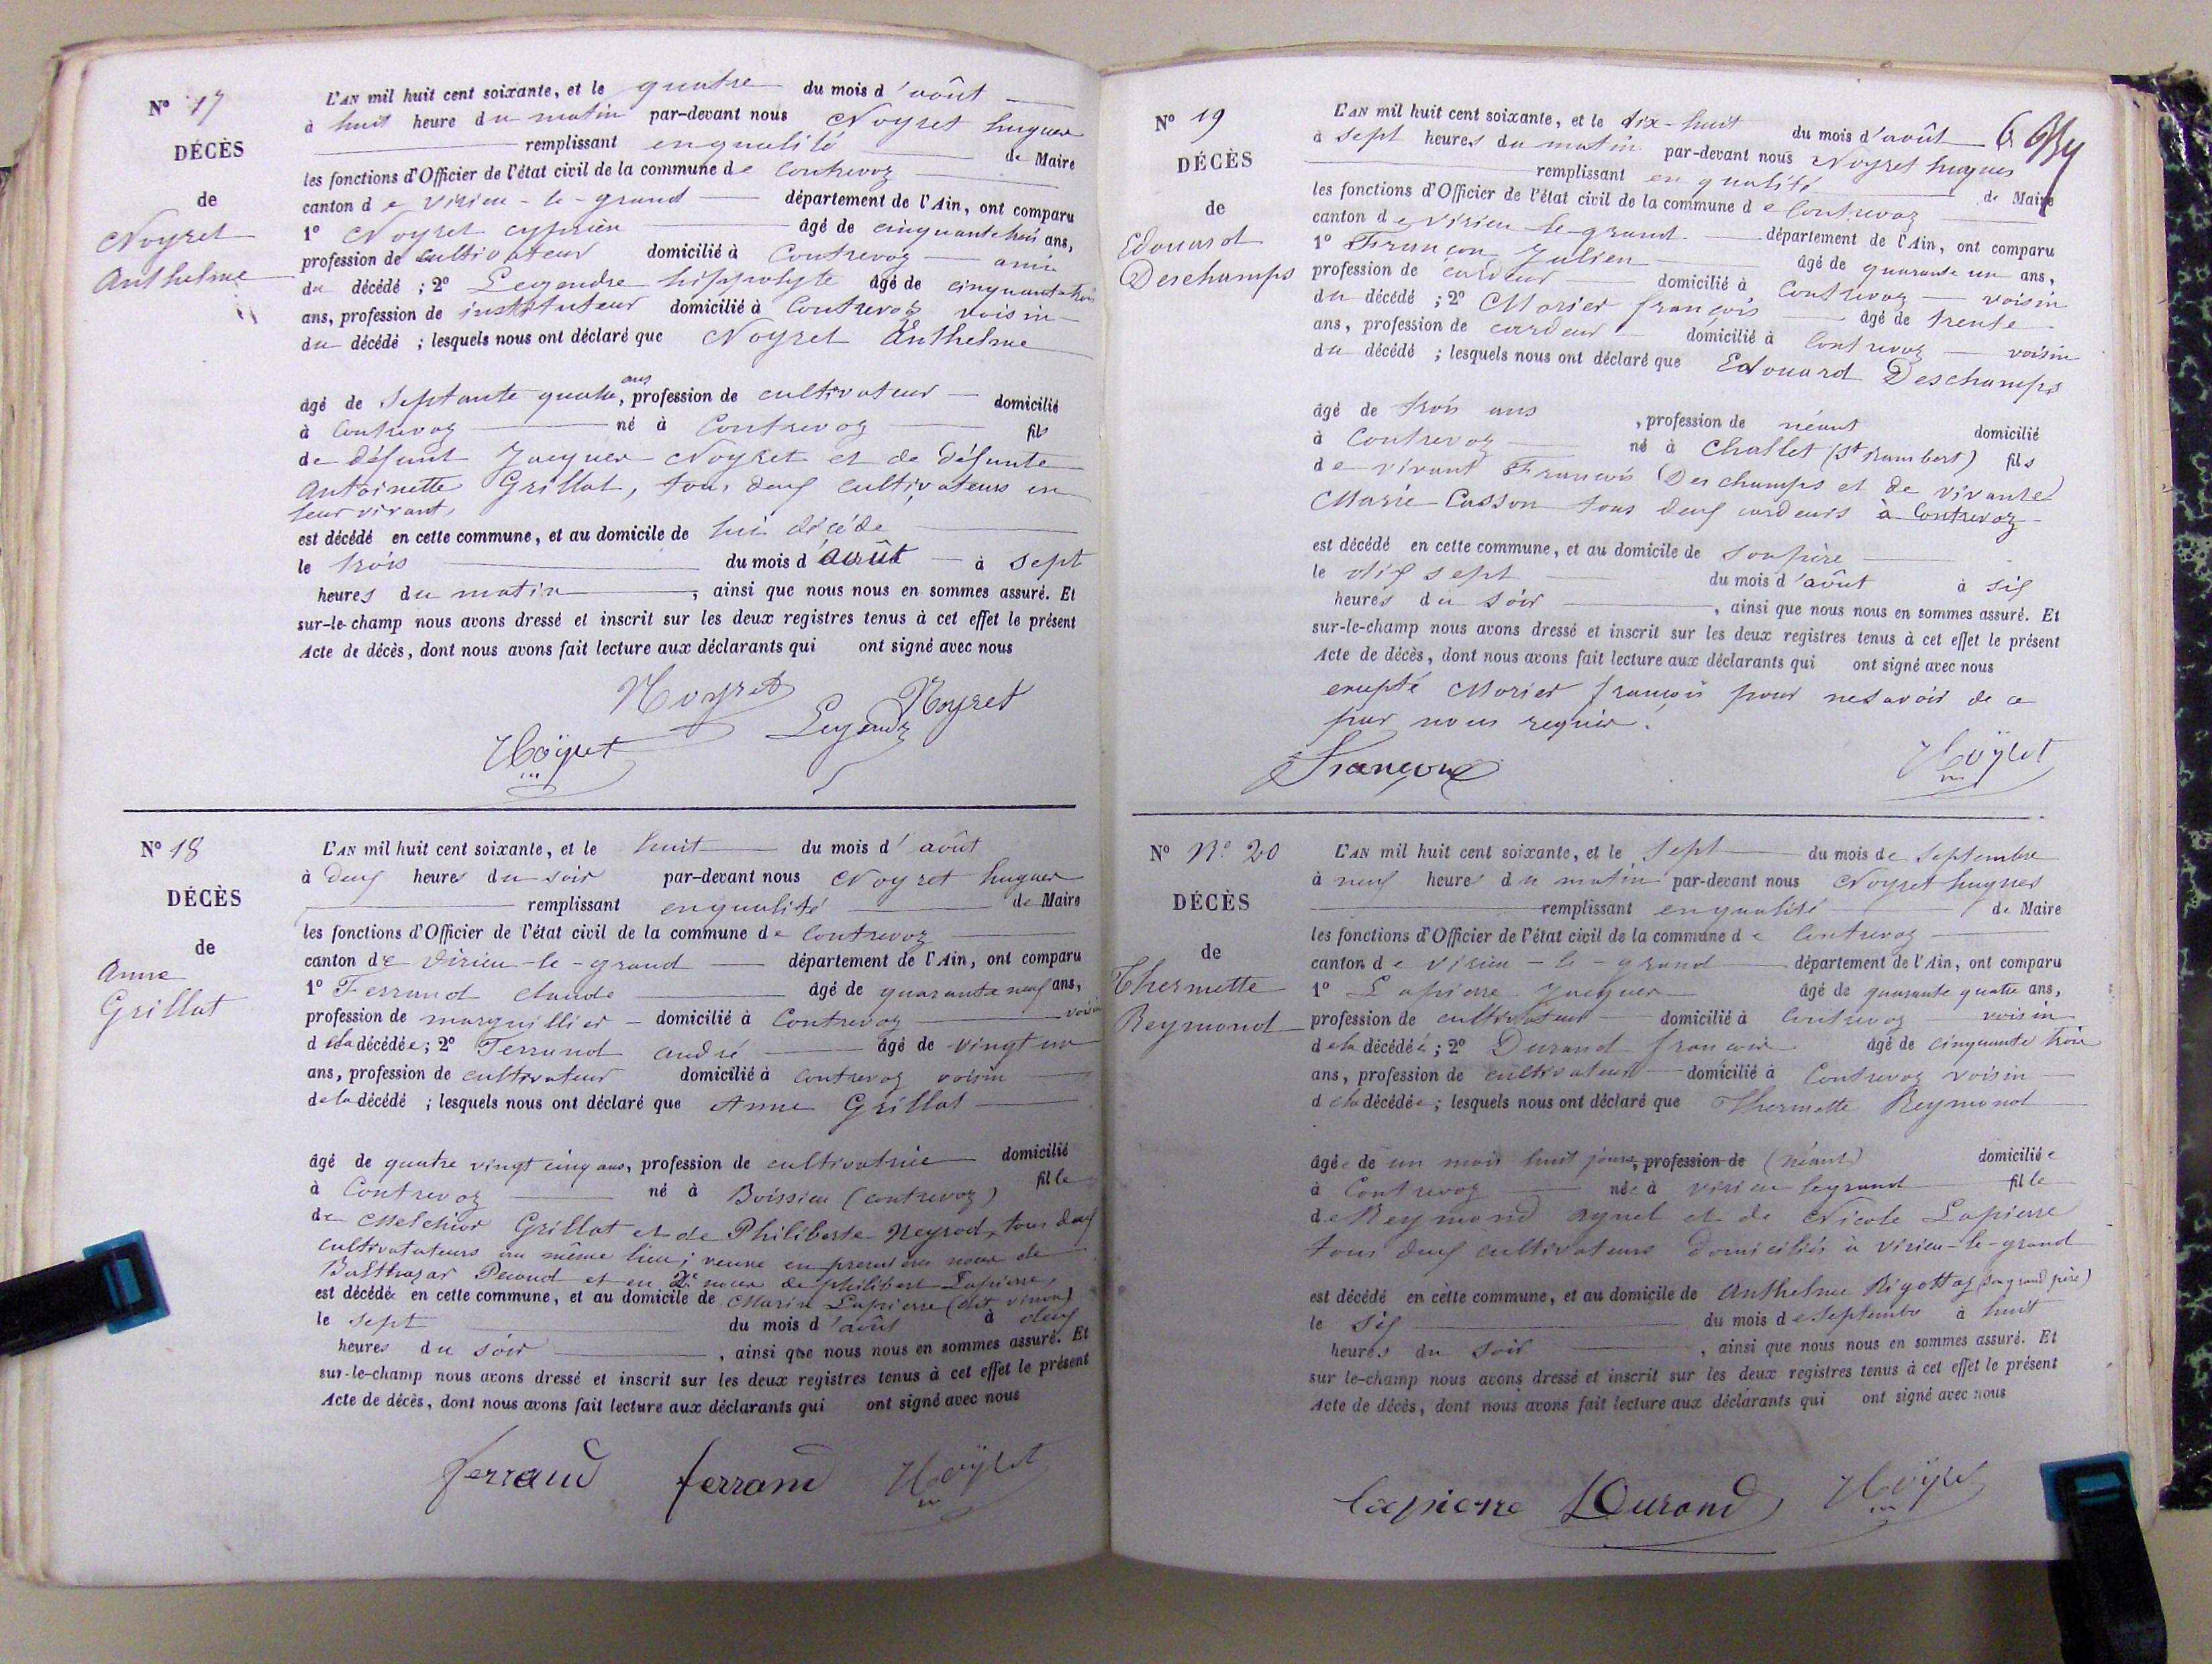 N° 17
DÉCÈS
de
Noyret
Anthelme
L'AN mil huit cent soixante, et le quatre du mois d'août
à huit heure du matin par-devant nous Noyret hugues
remplissant en qualité de Maire
les fonctions d'Officier de l'état civil de la commune de Contrevoz
canton de Virieu-le-grand département de l'Ain, ont comparu
1° Noyret cyprien âgé de cinquante trois ans,
profession de cultivateur domicilié à Contrevoz ami
du décédé ; 2° Legendre hippolyte âgé de cinquante trois
ans, profession de instituteur domicilié à Contrevoz voisin
du décédé ; lesquels nous ont déclaré que Noyret Anthelme
âgé de septante quatre ans, profession de cultivateur domicilié
à Contrevoz né à Contrevoz fils
de défunt Jacques Noyret et de défunte
Antoinette Grillat, tous deux cultivateurs en
leur vivant,
est décédé en cette commune, et au domicile de lui décédé
le trois du mois d'août à sept
heures du matin, ainsi que nous nous en sommes assuré. Et
sur-le-champ nous avons dressé et inscrit sur les deux registres tenus à cet effet le présent
Acte de décès, dont nous avons fait lecture aux déclarants qui ont signé avec nous
Noyret Noyret
Legendre
Noÿret
N° 18
DÉCÈS
de
Anne
Grillat
L'AN mil huit cent soixante, et le huit du mois d'août
à deux heures du soir par-devant nous Noyret hugues
remplissant en qualité de Maire
les fonctions d'Officier de l'état civil de la commune de Contrevoz
canton de Virieu-le-grand département de l'Ain, ont comparu
1° Ferrand claude âgé de quarante neuf ans,
profession de marguillier domicilié à Contrevoz voisin
de la décédée ; 2° Ferrand andré âgé de vingt un
ans, profession de cultivateur domicilié à contrevoz voisin
de la décédé ; lesquels nous ont déclaré que Anne Grillat
âgé de quatre vingt cinq ans, profession de cultivatrice domicilié
à Contrevoz né à Boissieu (contrevoz) fille
de Melchior Grillat et de Philiberte Neyrod, tous deux
cultivatateurs au même lieu ; veuve en premières noces de
Balthazar Pecoud et en 2e noces de philibert Lapierre,
est décédée en cette commune, et au domicile de Marin Lapierre
le sept du mois d'août à deux
heures du soir, ainsi que nous nous en sommes assuré. Et
sur-le-champ nous avons dressé et inscrit sur les deux registres tenus à cet effet le présent
Acte de décès, dont nous avons fait lecture aux déclarants qui ont signé avec nous
ferrand ferrand Noÿret
N° 19
DÉCÈS
de
Edouard
Deschamps
L'AN mil huit cent soixante, et le dix-huit du mois d'août
à sept heures du matin par-devant nous Noyret hugues
remplissant en qualité de Maire
les fonctions d'Officier de l'état civil de la commune de Contrevoz
canton de virieu-le-grand département de l'Ain, ont comparu
1° Françon Julien âgé de quarante un ans,
profession de cardeur domicilié à Contrevoz voisin
du décédé ; 2° Morier françois âgé de trente
ans, profession de cardeur domicilié à Contrevoz voisin
du décédé ; lesquels nous ont déclaré que Edouard Deschamps
âgé de trois ans, profession de néant domicilié
à Contrevoz né à Challet (St Rambert) fils
de vivant François Deschamps et de vivante
Marie Casson tous deux cardeurs à Contrevoz
est décédé en cette commune, et au domicile de son père
le dix sept du mois d'août à six
heures du soir, ainsi que nous nous en sommes assuré. Et
sur-le-champ nous avons dressé et inscrit sur les deux registres tenus à cet effet le présent
Acte de décès, dont nous avons fait lecture aux déclarants qui ont signé avec nous
excepté Morier françois pour ne savoir de ce
par nous requis.
Françon Noÿret
N° N° 20
DÉCÈS
de
Thermette
Reymond
L'AN mil huit cent soixante, et le sept du mois de septembre
à neuf heures du matin par-devant nous Noyret hugues
remplissant en qualité de Maire
les fonctions d'Officier de l'état civil de la commune de Contrevoz
canton de virieu-le-grand département de l'Ain, ont comparu
1° Lapierre Jacques âgé de quarante quatre ans,
profession de cultivateur domicilié à Contrevoz voisin
de la décédée ; 2° Durand françois âgé de cinquante trois
ans, profession de cultivateur domicilié à Contrevoz voisin
de la décédée ; lesquels nous ont déclaré que Thermette Reymond
âgée de un mois huit jours, profession de (néant) domiciliée
à Contrevoz née à virieu legrand fille
de Reymond aynel et de Nicole Lapierre
tous deux cultivateurs domiciliés à virieu-le-grand
est décédé en cette commune, et au domicile de Anthelme Rigottaz (son grand père)
le six du mois de septembre à huit
heures du soir, ainsi que nous nous en sommes assuré. Et
sur le-champ nous avons dressé et inscrit sur les deux registres tenus à cet effet le présent
Acte de décès, dont nous avons fait lecture aux déclarants qui ont signé avec nous
Lapierre Durand Noÿret